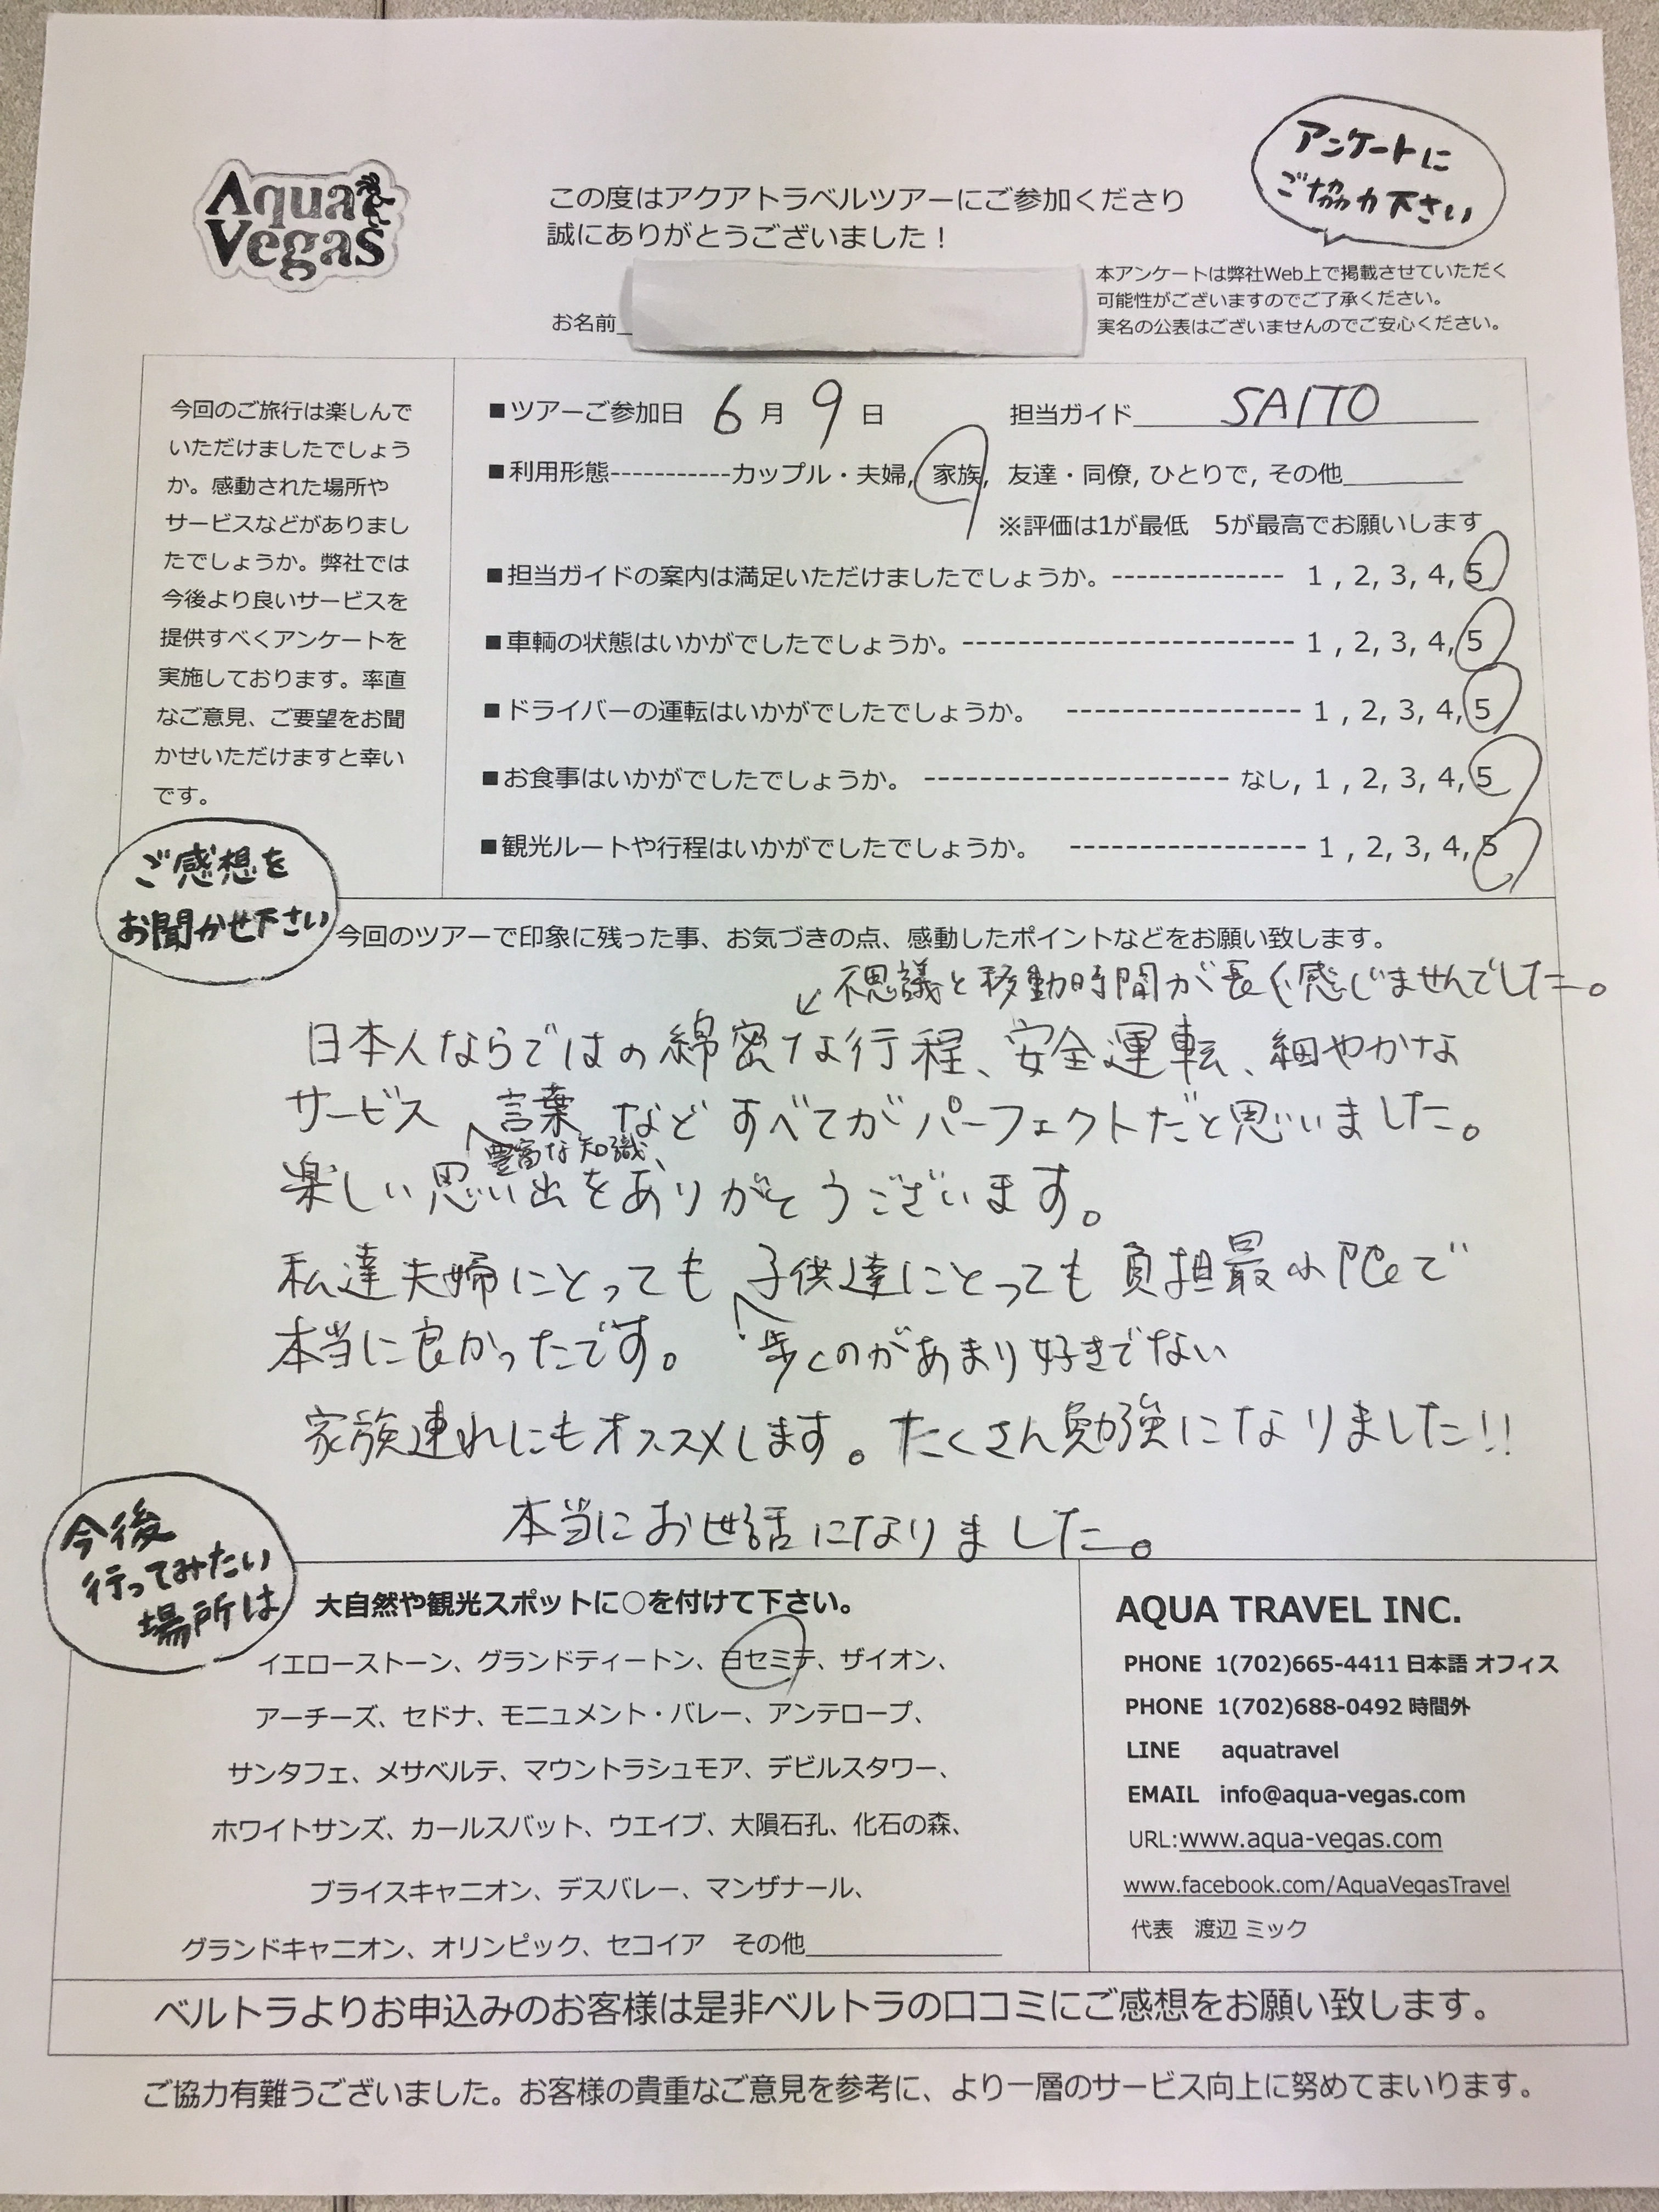 Aqua
Vegas
アンケートに
ご協力下さい
この度はアクアトラベルツアーにご参加くださり
誠にありがとうございました！
本アンケートは弊社Web上で掲載させていただく
可能性がございますのでご了承ください。
実名の公表はございませんのでご安心ください。
お名前
今回のご旅行は楽しんで
いただけましたでしょう
か。感動された場所や
サービスなどがありまし
たでしょうか。弊社では
今後より良いサービスを
提供すべくアンケートを
実施しております。率直
なご意見、ご要望をお聞
かせいただけますと幸い
です。
■ツアーご参加日 6月 9日 担当ガイド SAITO
■利用形態-----------カップル・夫婦, 家族, 友達・同僚, ひとりで, その他
※評価は1が最低 5が最高でお願いします
■担当ガイドの案内は満足いただけましたでしょうか。-------------- 1 , 2, 3, 4, 5
■車輌の状態はいかがでしたでしょうか。------------------------ 1 , 2, 3, 4, 5
■ドライバーの運転はいかがでしたでしょうか。 ----------------- 1 , 2, 3, 4, 5
■お食事はいかがでしたでしょうか。 ---------------------- なし, 1 , 2, 3, 4, 5
■観光ルートや行程はいかがでしたでしょうか。 ----------------- 1 , 2, 3, 4, 5
ご感想を
お聞かせ下さい
今回のツアーで印象に残った事、お気づきの点、感動したポイントなどをお願い致します。
↙不思議と移動時間が長く感じませんでした。
日本人ならではの綿密な行程、安全運転、細やかな
サービス 言葉 などすべてがパーフェクトだと思いました。
豊富な知識、
楽しい思い出をありがとうございます。
私達夫婦にとっても 子供達にとっても負担最小限で
本当に良かったです。 歩くのがあまり好きでない
家族連れにもオススメします。たくさん勉強になりました!!
本当にお世話になりました。
今後
行ってみたい
場所は
大自然や観光スポットに○を付けて下さい。
イエローストーン、グランドティートン、ヨセミテ、ザイオン、
アーチーズ、セドナ、モニュメント・バレー、アンテロープ、
サンタフェ、メサベルテ、マウントラシュモア、デビルスタワー、
ホワイトサンズ、カールスバット、ウエイブ、大隕石孔、化石の森、
ブライスキャニオン、デスバレー、マンザナール、
グランドキャニオン、オリンピック、セコイア その他
AQUA TRAVEL INC.
PHONE 1(702)665-4411 日本語 オフィス
PHONE 1(702)688-0492 時間外
LINE aquatravel
EMAIL info@aqua-vegas.com
URL:www.aqua-vegas.com
www.facebook.com/AquaVegasTravel
代表 渡辺 ミック
ベルトラよりお申込みのお客様は是非ベルトラの口コミにご感想をお願い致します。
ご協力有難うございました。お客様の貴重なご意見を参考に、より一層のサービス向上に努めてまいります。